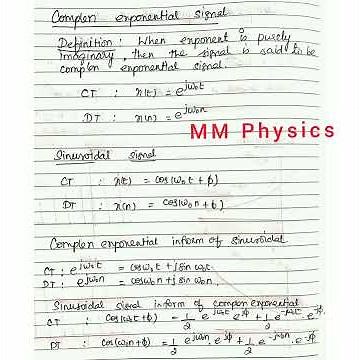 Complex exponential signal
Definition: When exponent is purely
Imaginary, then the signal is said to be
complex exponential signal.
CT : x(t) = e^jω₀t
DT : x(n) = e^jω₀n
MM Physics
Sinusoidal signal
CT : x(t) = cos(ω₀t + ϕ)
DT : x(n) = cos(ω₀n + ϕ)
Complex exponential inform of sinusoidal
CT : e^jω₀t = cosω₀t + j sin ω₀t
DT : e^jω₀n = cosω₀n + j sin ω₀n.
Sinusoidal signal inform of complex exponential
CT : cos(ω₀t+ϕ) = 1/2 e^jω₀t . e^jϕ + 1/2 e^-jω₀t . e^-jϕ
DT : cos(ω₀n+ϕ) = 1/2 e^jω₀n . e^jϕ + 1/2 e^-jω₀n . e^-jϕ